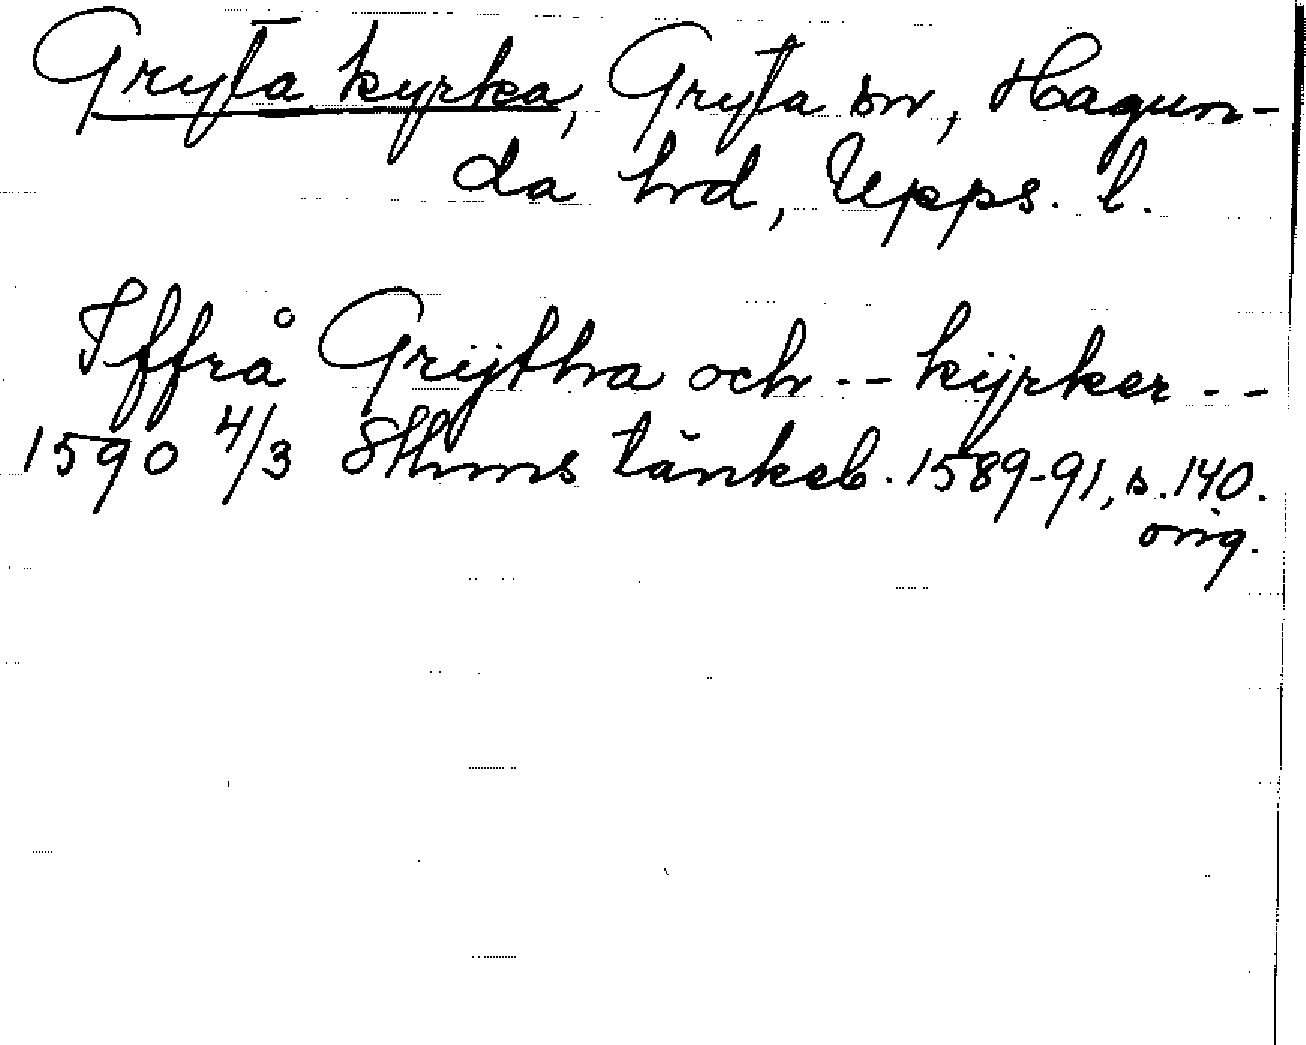 Gryta kyrka, Gryta sn, Hagun-
da hrd, Upps. l.
Iffrå Grÿtha och -- kÿrker --
1590 4/3 Sthms tänkeb. 1589-91, s. 140.
orig.